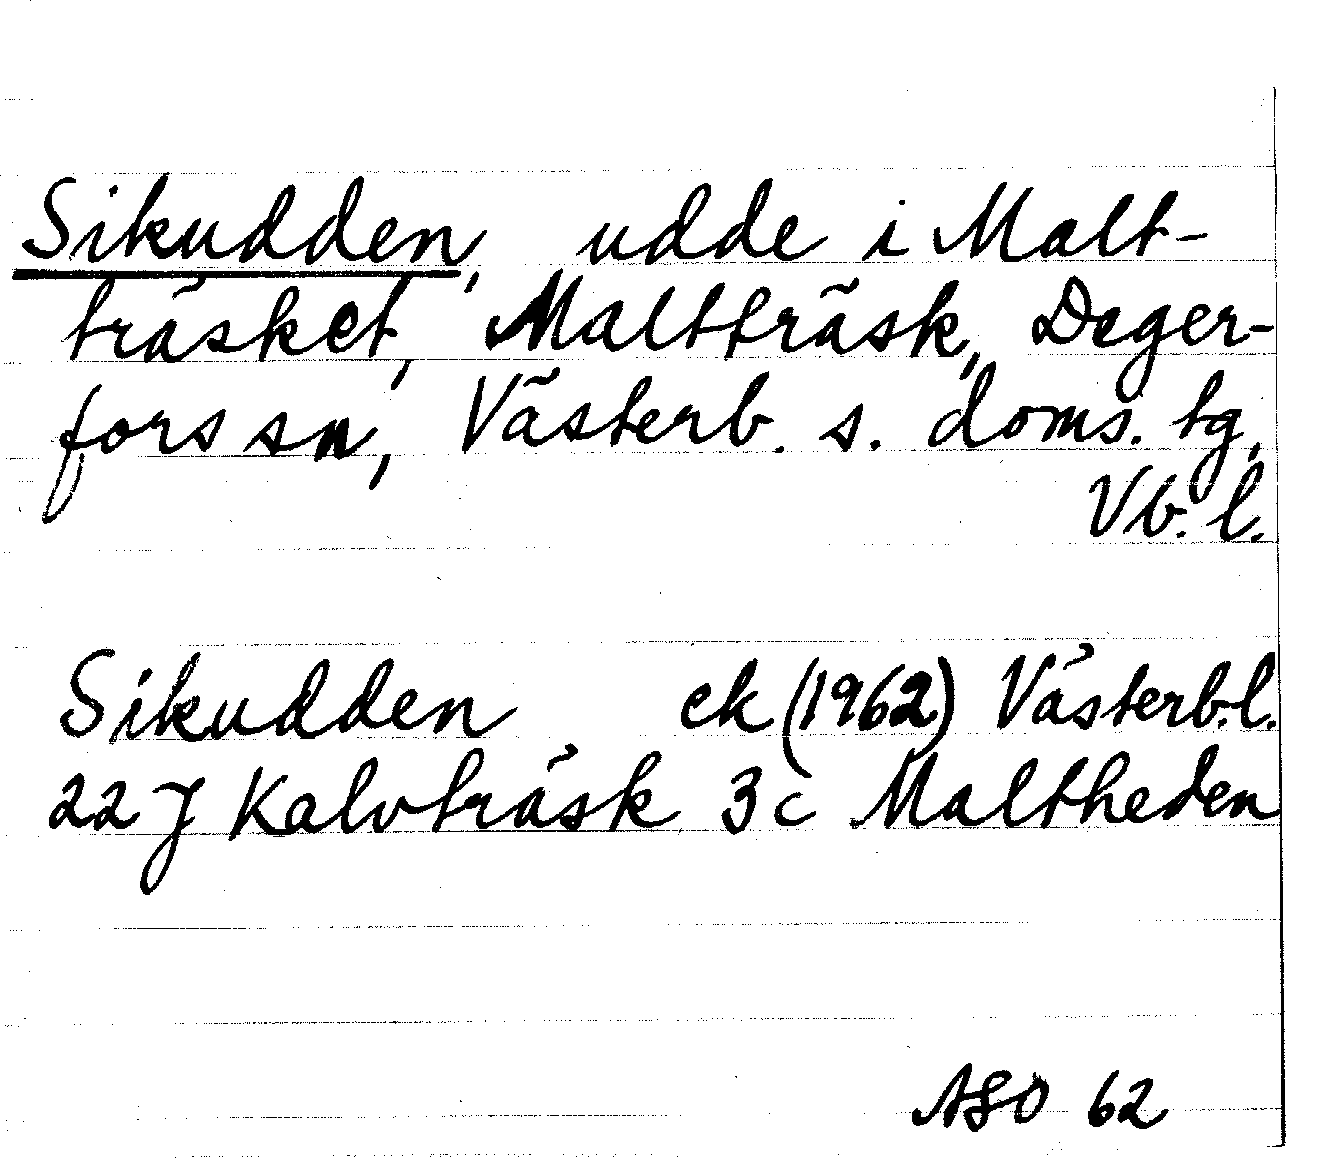 Sikudden, udde i Malt-
träsket, Maltträsk, Deger-
fors sn, Västerb. s. doms. tg,
Vb. l.
Sikudden ek (1962) Västerb.l.
22 J Kalvträsk 3 c Maltheden
ASO 62